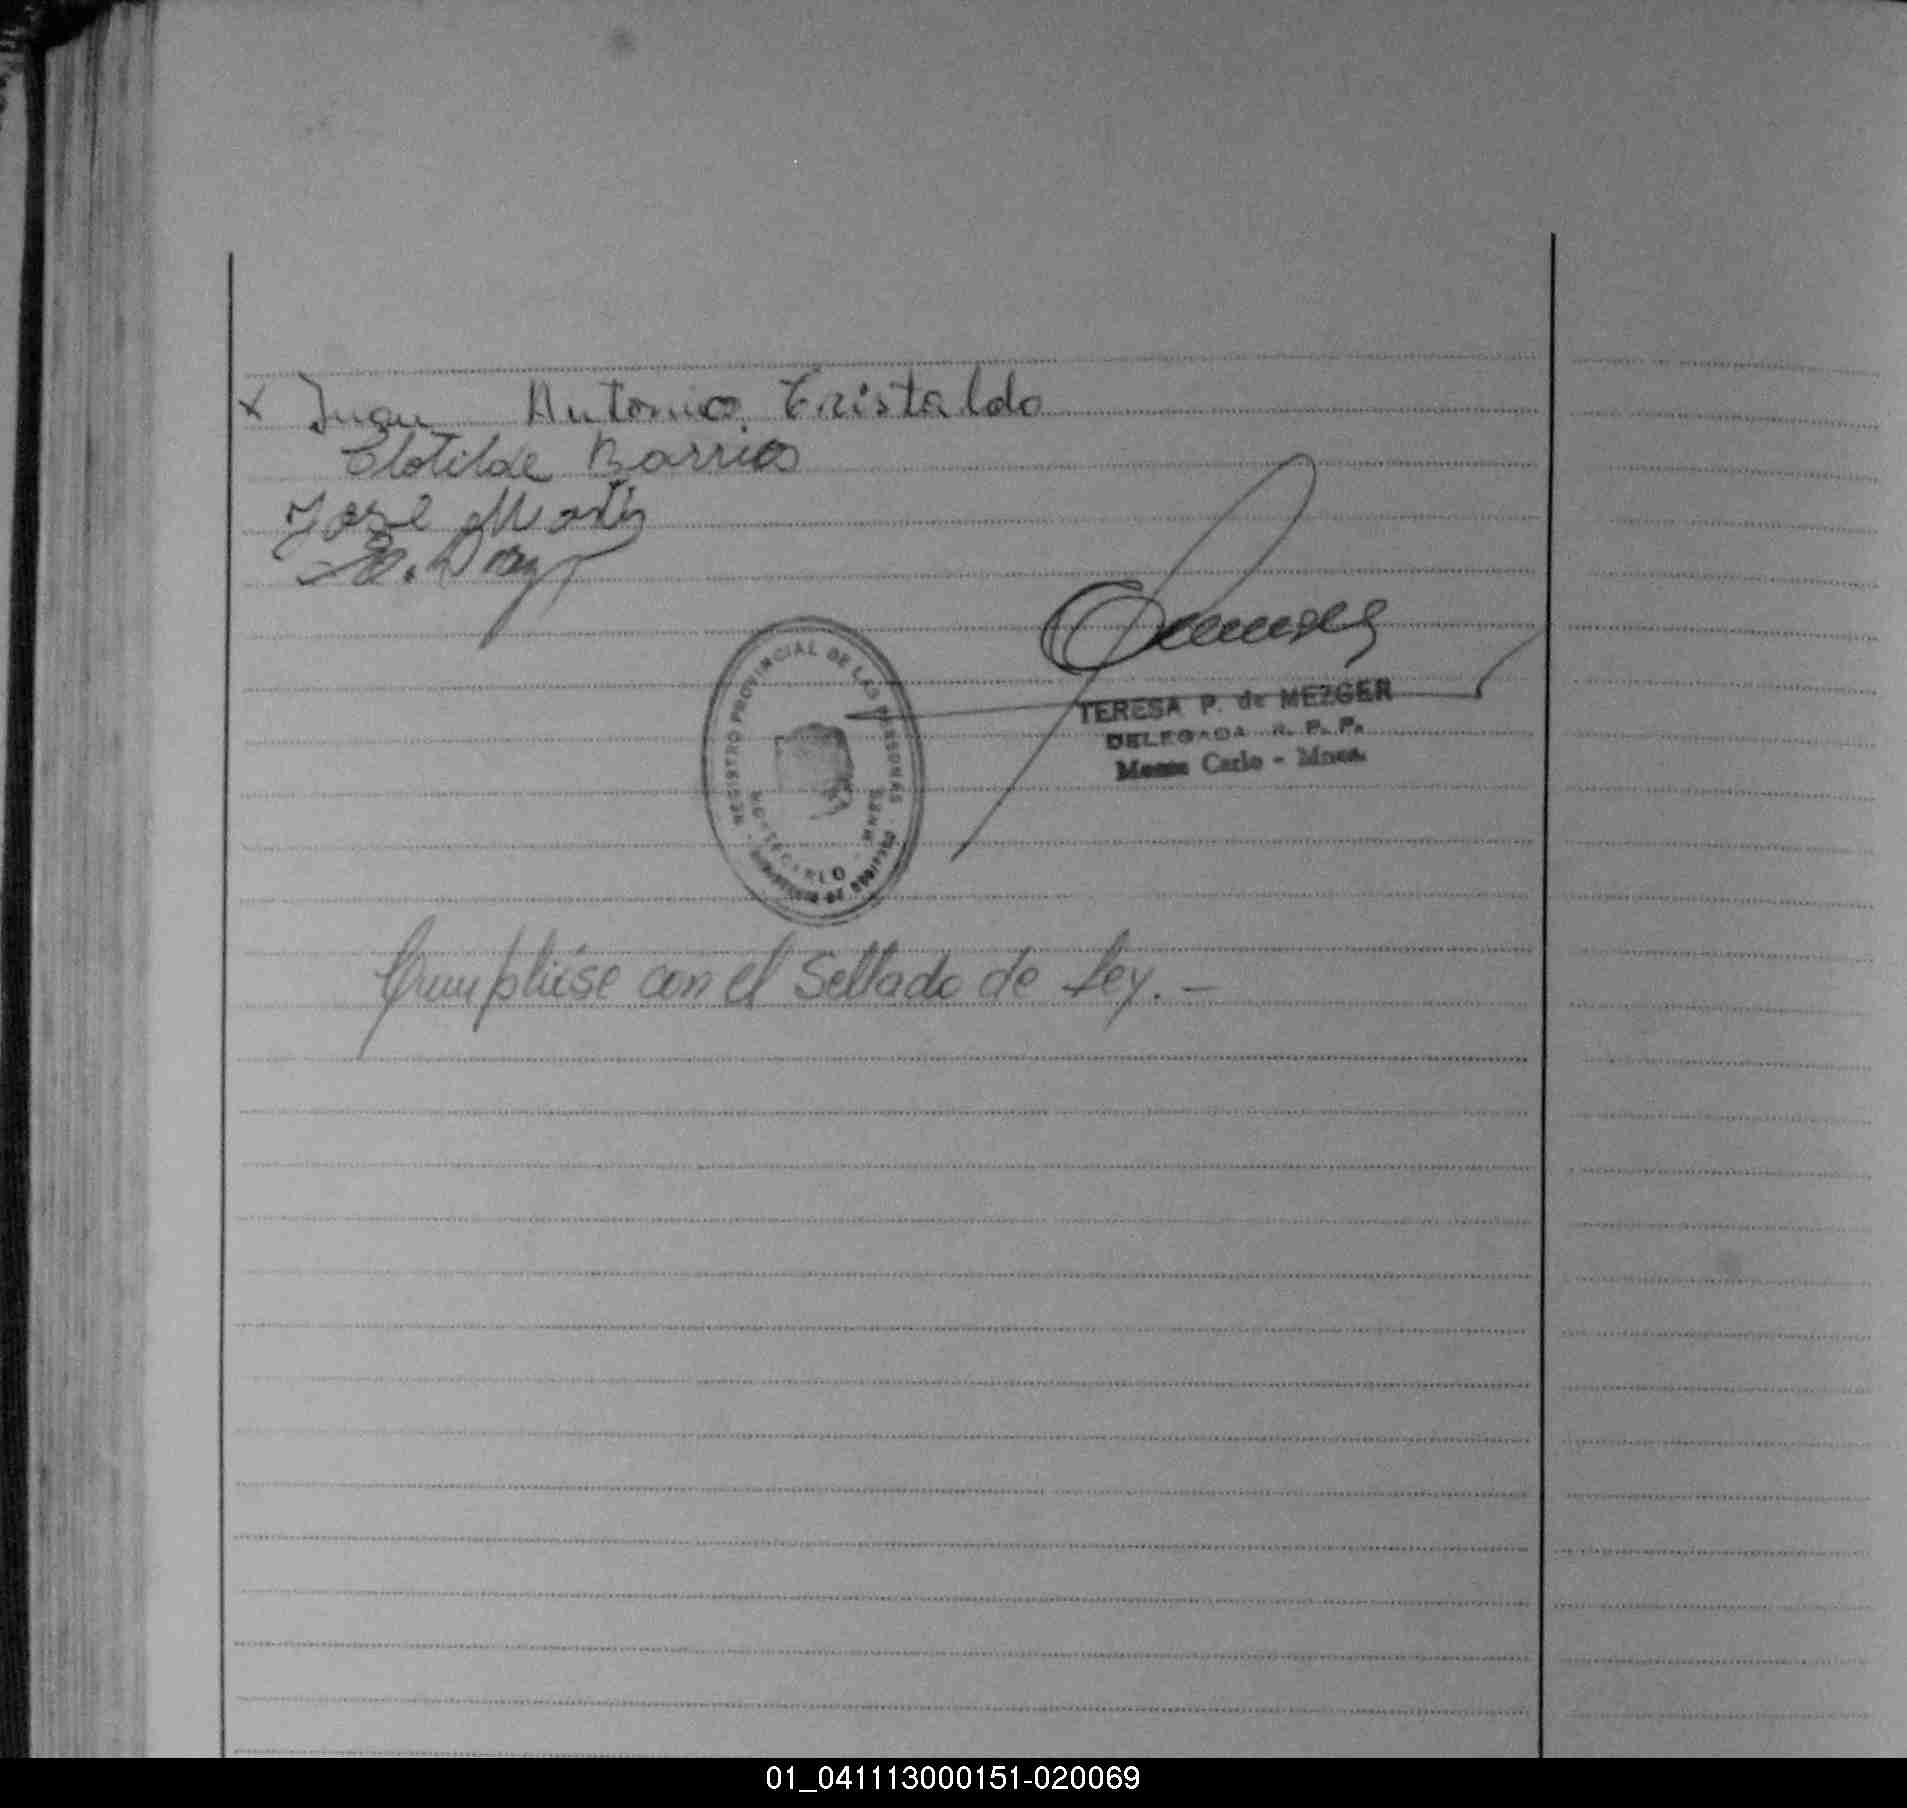 x Juan Antonio Cristaldo
Clotilde Barrios
José Martíz
TERESA P. de MEZGER
DELEGADA R. P. P.
Monte Carlo - Mnes.
REGISTRO PROVINCIAL DE LAS PERSONAS
MONTECARLO
Cumplióse con el Sellado de Ley. -
01_041113000151-020069